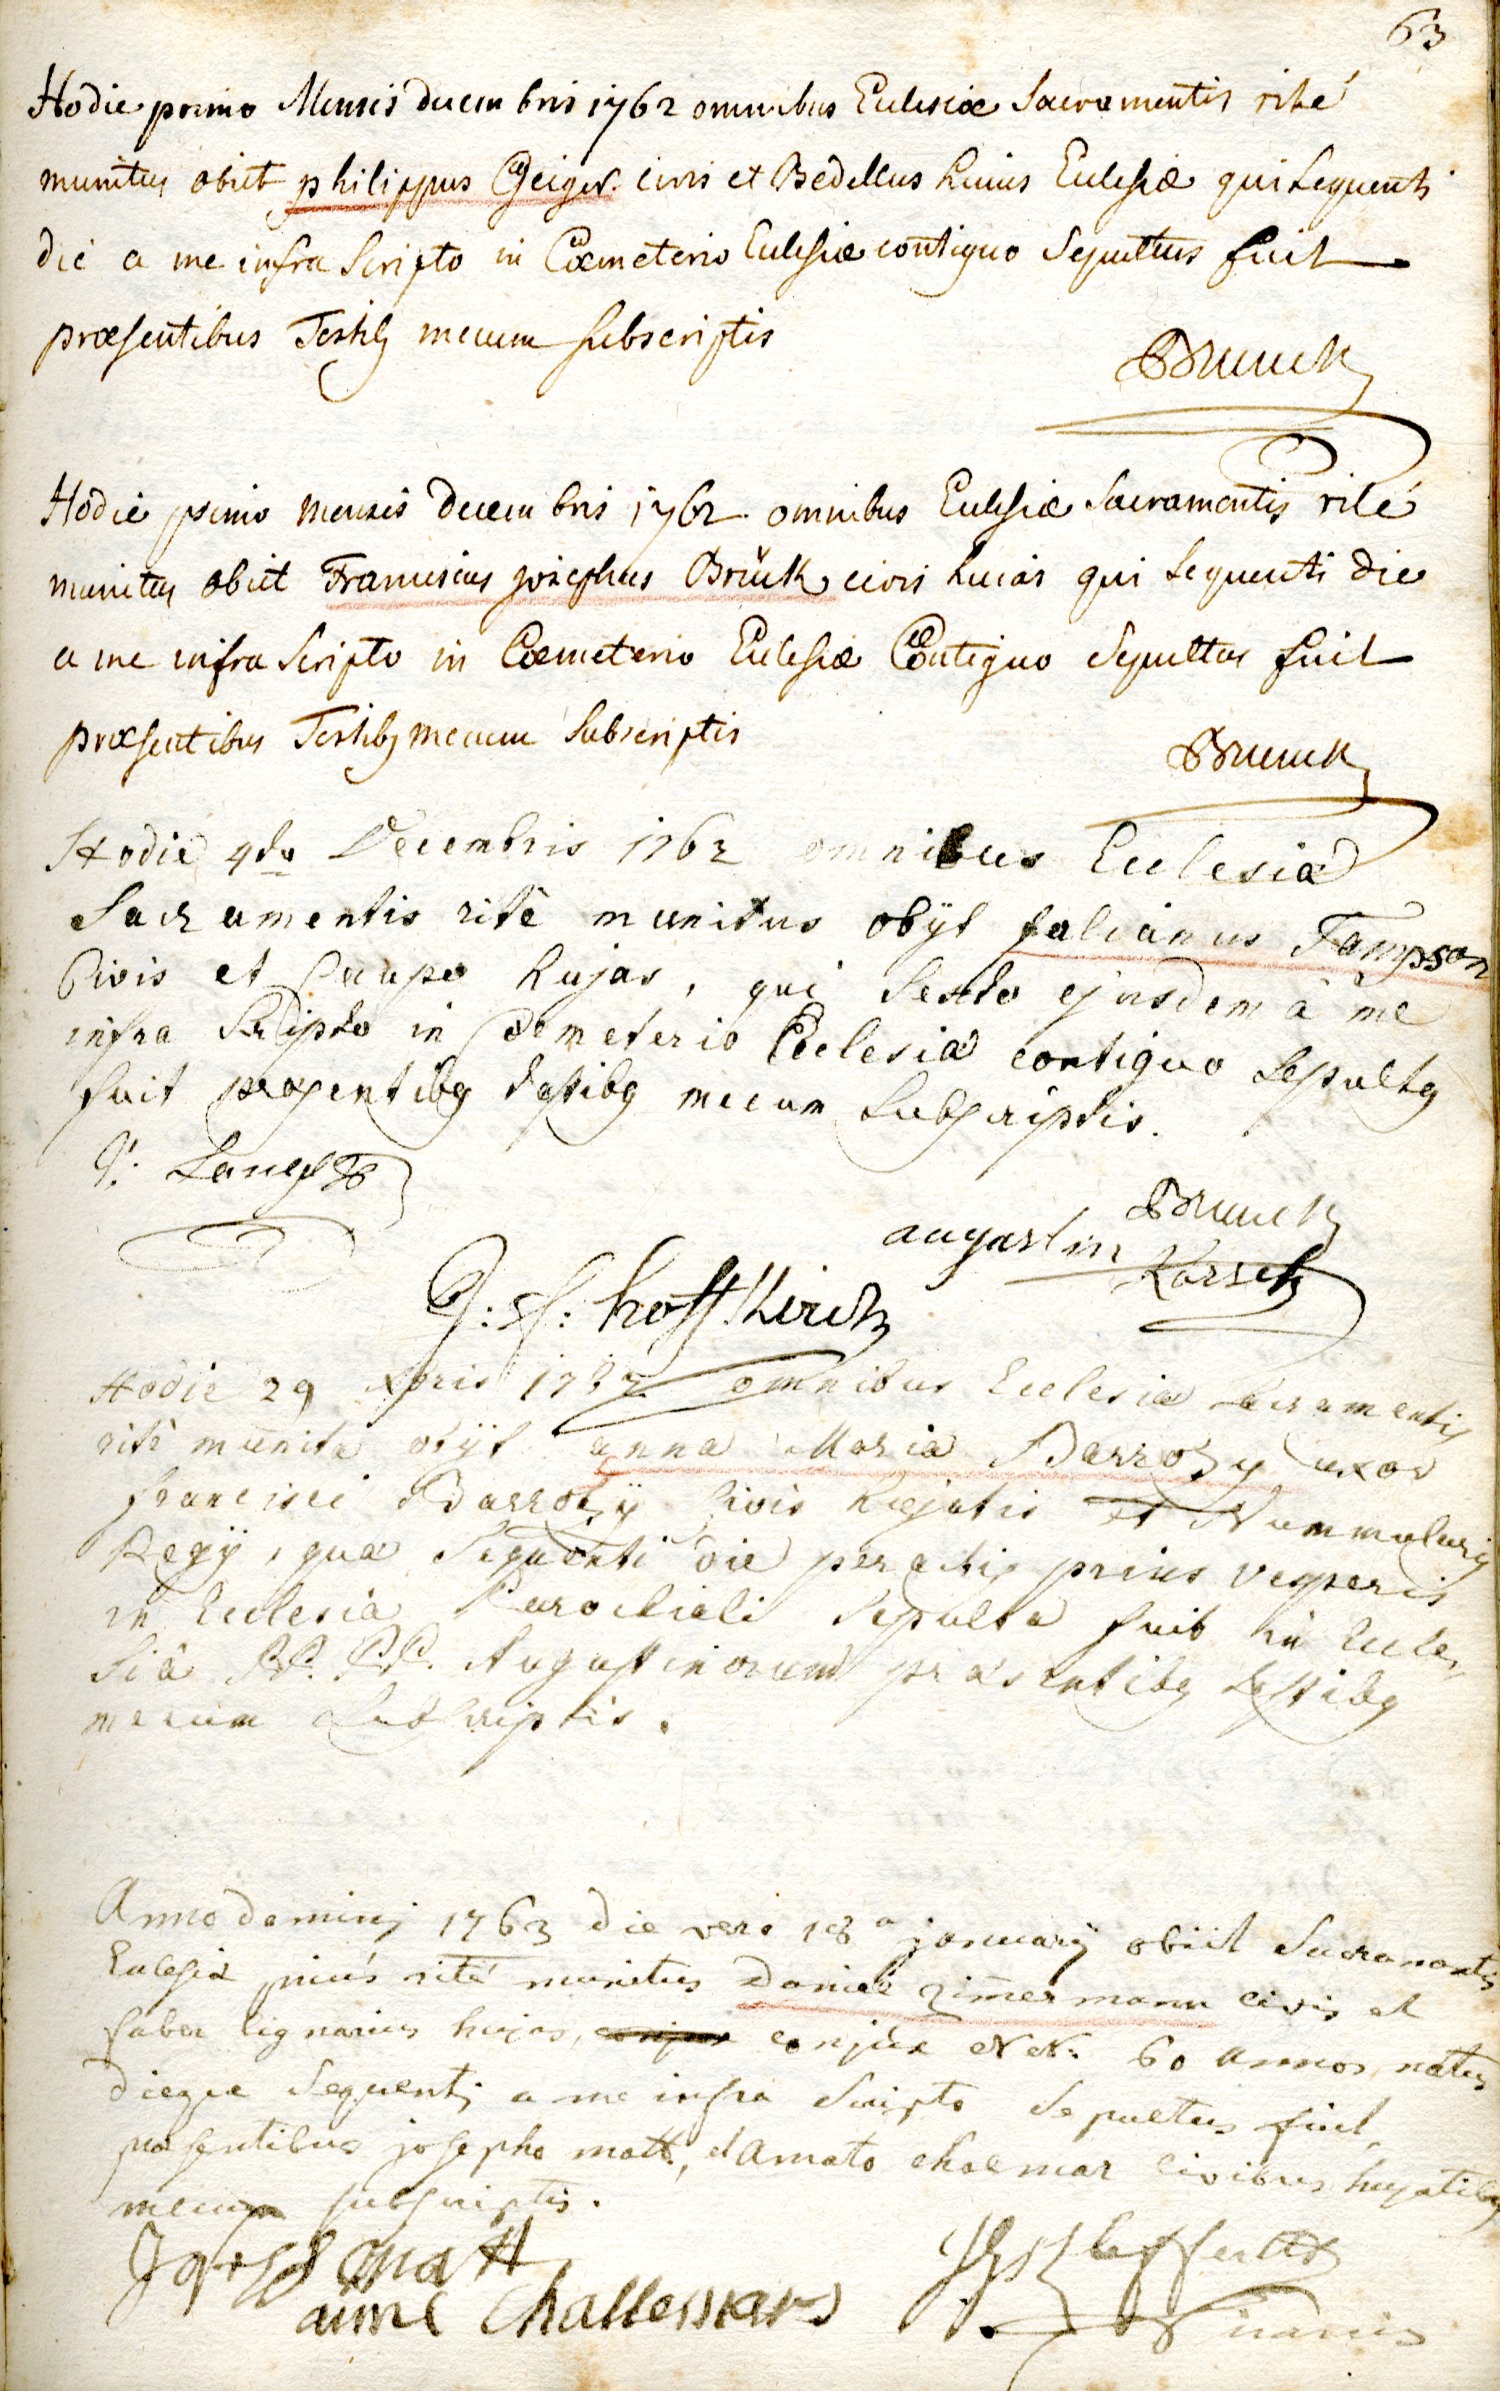 63
Hodie primo Mensis decembris 1762 omnibus Ecclesiæ Sacramentis rité
munitus obiit philippus Geiger civis et Bedellus huius Ecclesiæ qui sequenti
die a me infra scripto in Cœmeterio Ecclesiæ contiguo sepultus fuit
præsentibus Testibq mecum subscriptis
Brunck
Hodie primo mensis decembris 1762 omnibus Ecclesiæ Sacramentis rité
munitus obiit Franciscus josephus Brück civis huias qui sequenti die
a me infra scripto in Cœmeterio Ecclesiæ Contiguo sepultus fuit
præsentibus Testibq mecum subscriptis
Brunck
Hodie 4ta Decembris 1762 omnibus Ecclesiæ
Sacramentis ritè munitus obÿt Tampson
Civis et Caupo hujas, qui sexto ejusdem à me
infra scripto in Cœmeterio Ecclesiæ contiguo sepultq
fuit præsentibq testibq mecum subscriptis.
Brunck
augustin
J: H: hoffkirch
Hodie 29 Xbris omnibus Ecclesiæ Sacramentis
ritè munita obÿt anna Maria Barrozy uxor
francisci Barrozÿ Civis hujatis et Nummularÿ
Regÿ, quæ Sequenti die peractis prius vesperis
in Ecclesiâ Parochiali Sepulta fuit in Eccle,
siâ RR. PP. Augustinorum præsentibq testibq
mecum subscriptis.
Anno dominj 1763 die vero 18a januarÿ obiit Sacramentis
Ecclesiæ priús rité munitus Daniel Zimermann civis et
faber lignarius hujas, conjux NN. 60 annos natus
dieque sequentj a me infra scripto sepultus fuit,
præsentibus josepho matt, et Amato chalemar civibus hujatibq
mecum subscriptis.
Joseph Matt
aimé Challemars
Vicarius